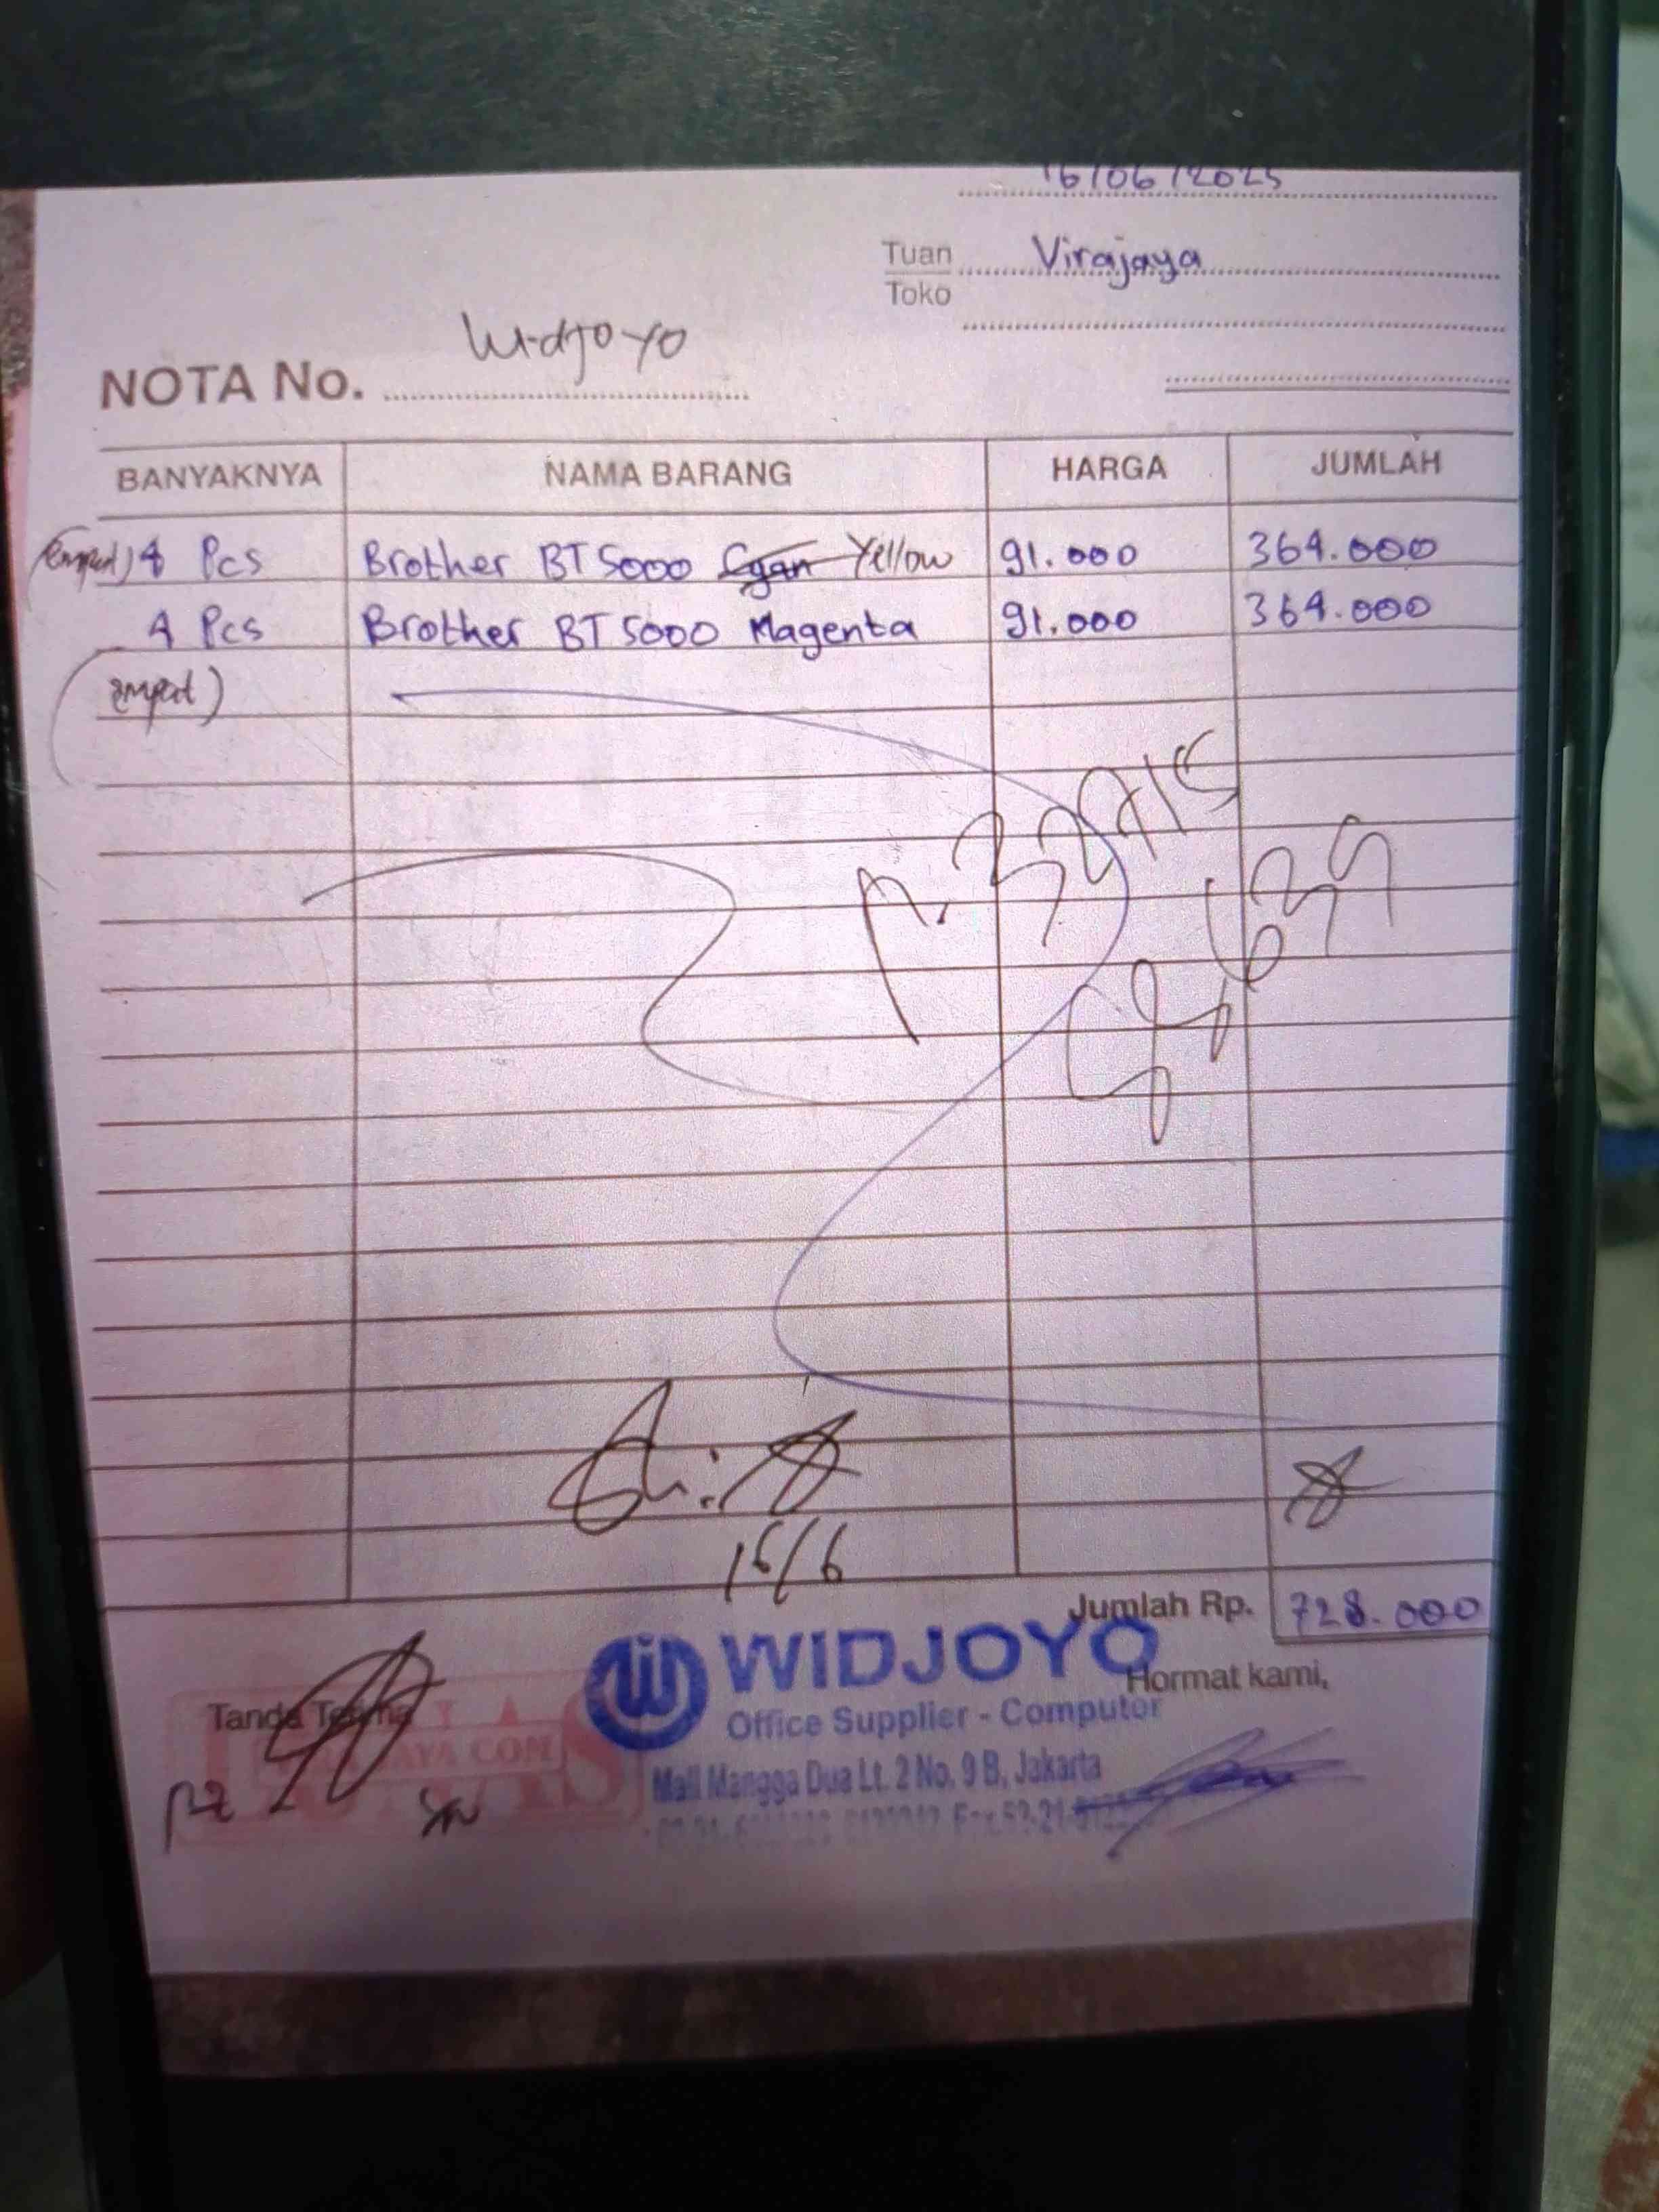 16/06/2025
Tuan Virajaya
Toko
Widjoyo
NOTA No.
BANYAKNYA NAMA BARANG HARGA JUMLAH
(empat) 4 Pcs Brother BT 5000 Cyan Yellow 91.000 364.000
4 Pcs Brother BT 5000 Magenta 91.000 364.000
(empat)
16/6
Jumlah Rp. 728.000
WIDJOYO
Hormat kami,
Tanda Terima
Office Supplier - Computer
Mall Mangga Dua Lt. 2 No. 9 B, Jakarta